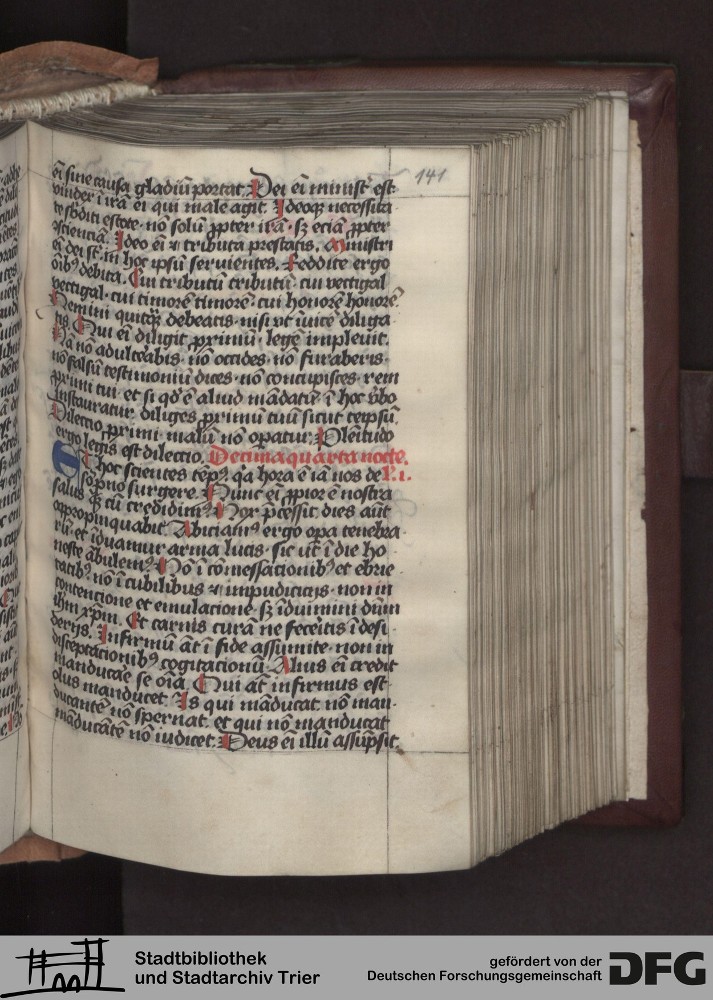 141
eī sine causa gladiū portat. Dei eī minist᷒ est
vinder ī irā ei qui male agit. Ideoqꝫ necessita
te s̄bditi estote· nō solū ꝓpter irā· sꝫ eciā ꝓpter
ꝯscienciā. Ideo eī ⁊ tributa prestatis. Ministri
eī dei st̄· in hoc ipsū seruientes. Reddite ergo
oīb᷒ debita. Cui tributū tributū· cui vectigal
vectigal· cui timorē timorē· cui honorē honorē·
Nemini quitqꝫ debeatis· nisi vt īuicē diliga
tis. Qui eī diligit ꝓximū· legē impleuit.
Nā nō adulterabis· nō occides· nō furaberis·
nō falsū testimoniū dices· nō concupisces· rem
ꝓximi tui· et si qd̄ ē aliud mādatū· ī hoc v̄bo
Instauratur· diliges ꝓximū tuū sicut teipsū.
Dilectio ꝓximi· malū nō opatur. Plēitudo
ergo legis est dilectio. Decima quarta nocte.
Et hoc scientes tēp᷒· qa hora ē iā nos de L. i.
sōpno surgere. Nunc eī ꝓpior ē nostra
salus qꝫ cū credidim᷒. Nox p̄cessit· dies aūt
appropinquabit. Abiciam᷒ ergo opa tenebra
rū· et īduamur arma lucis· sic ut ī die ho
neste ābulem᷒. Nō ī comessacionib᷒ et ebrie
tatib᷒· nō ī cubilibus ⁊ impudicicijs· non in
contencione et emulacione· sꝫ īduimini dūm
ihm xp̄m. Et carnis curā ne feceritis ī desi
derijs. Infirmū āt ī fide assumite· non in
disceptacionib᷒ cogitacionū. Alius eī credit
manducare se oīa. Qui āt infirmus est·
olus manducet. Is qui māducat· nō man
ducantē nō spernat· et qui nō manducat
māducātē nō iudicet. Deus eī illū assūpsit.
Stadtbibliothek
und Stadtarchiv Trier
gefördert von der
Deutschen Forschungsgemeinschaft
DFG